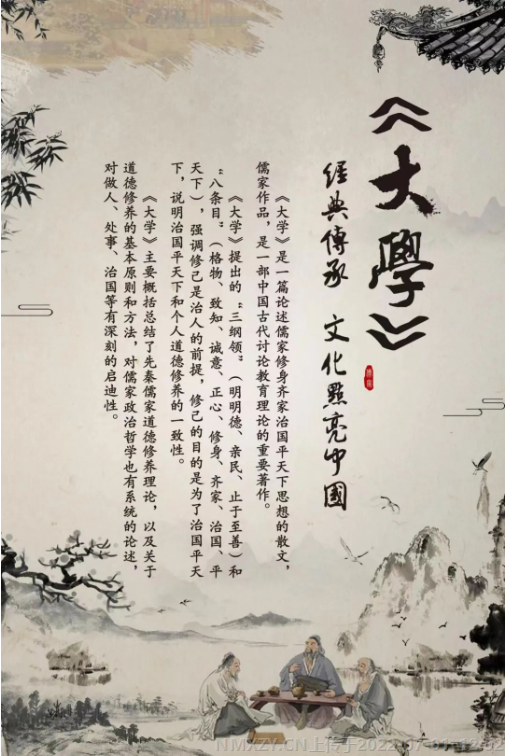 《大學》
經典傳承 文化點亮中國
《大学》是一篇论述儒家修身齐家治国平天下思想的散文，
儒家作品，是一部中国古代讨论教育理论的重要著作。
《大学》提出的“三纲领”（明明德、亲民、止于至善）和
“八条目”（格物、致知、诚意、正心、修身、齐家、治国、平
天下），强调修己是治人的前提，修己的目的是为了治国平天
下，说明治国平天下和个人道德修养的一致性。
《大学》主要概括总结了先秦儒家道德修养理论，以及关于
道德修养的基本原则和方法，对儒家政治哲学也有系统的论述，
对做人、处事、治国等有深刻的启迪性。